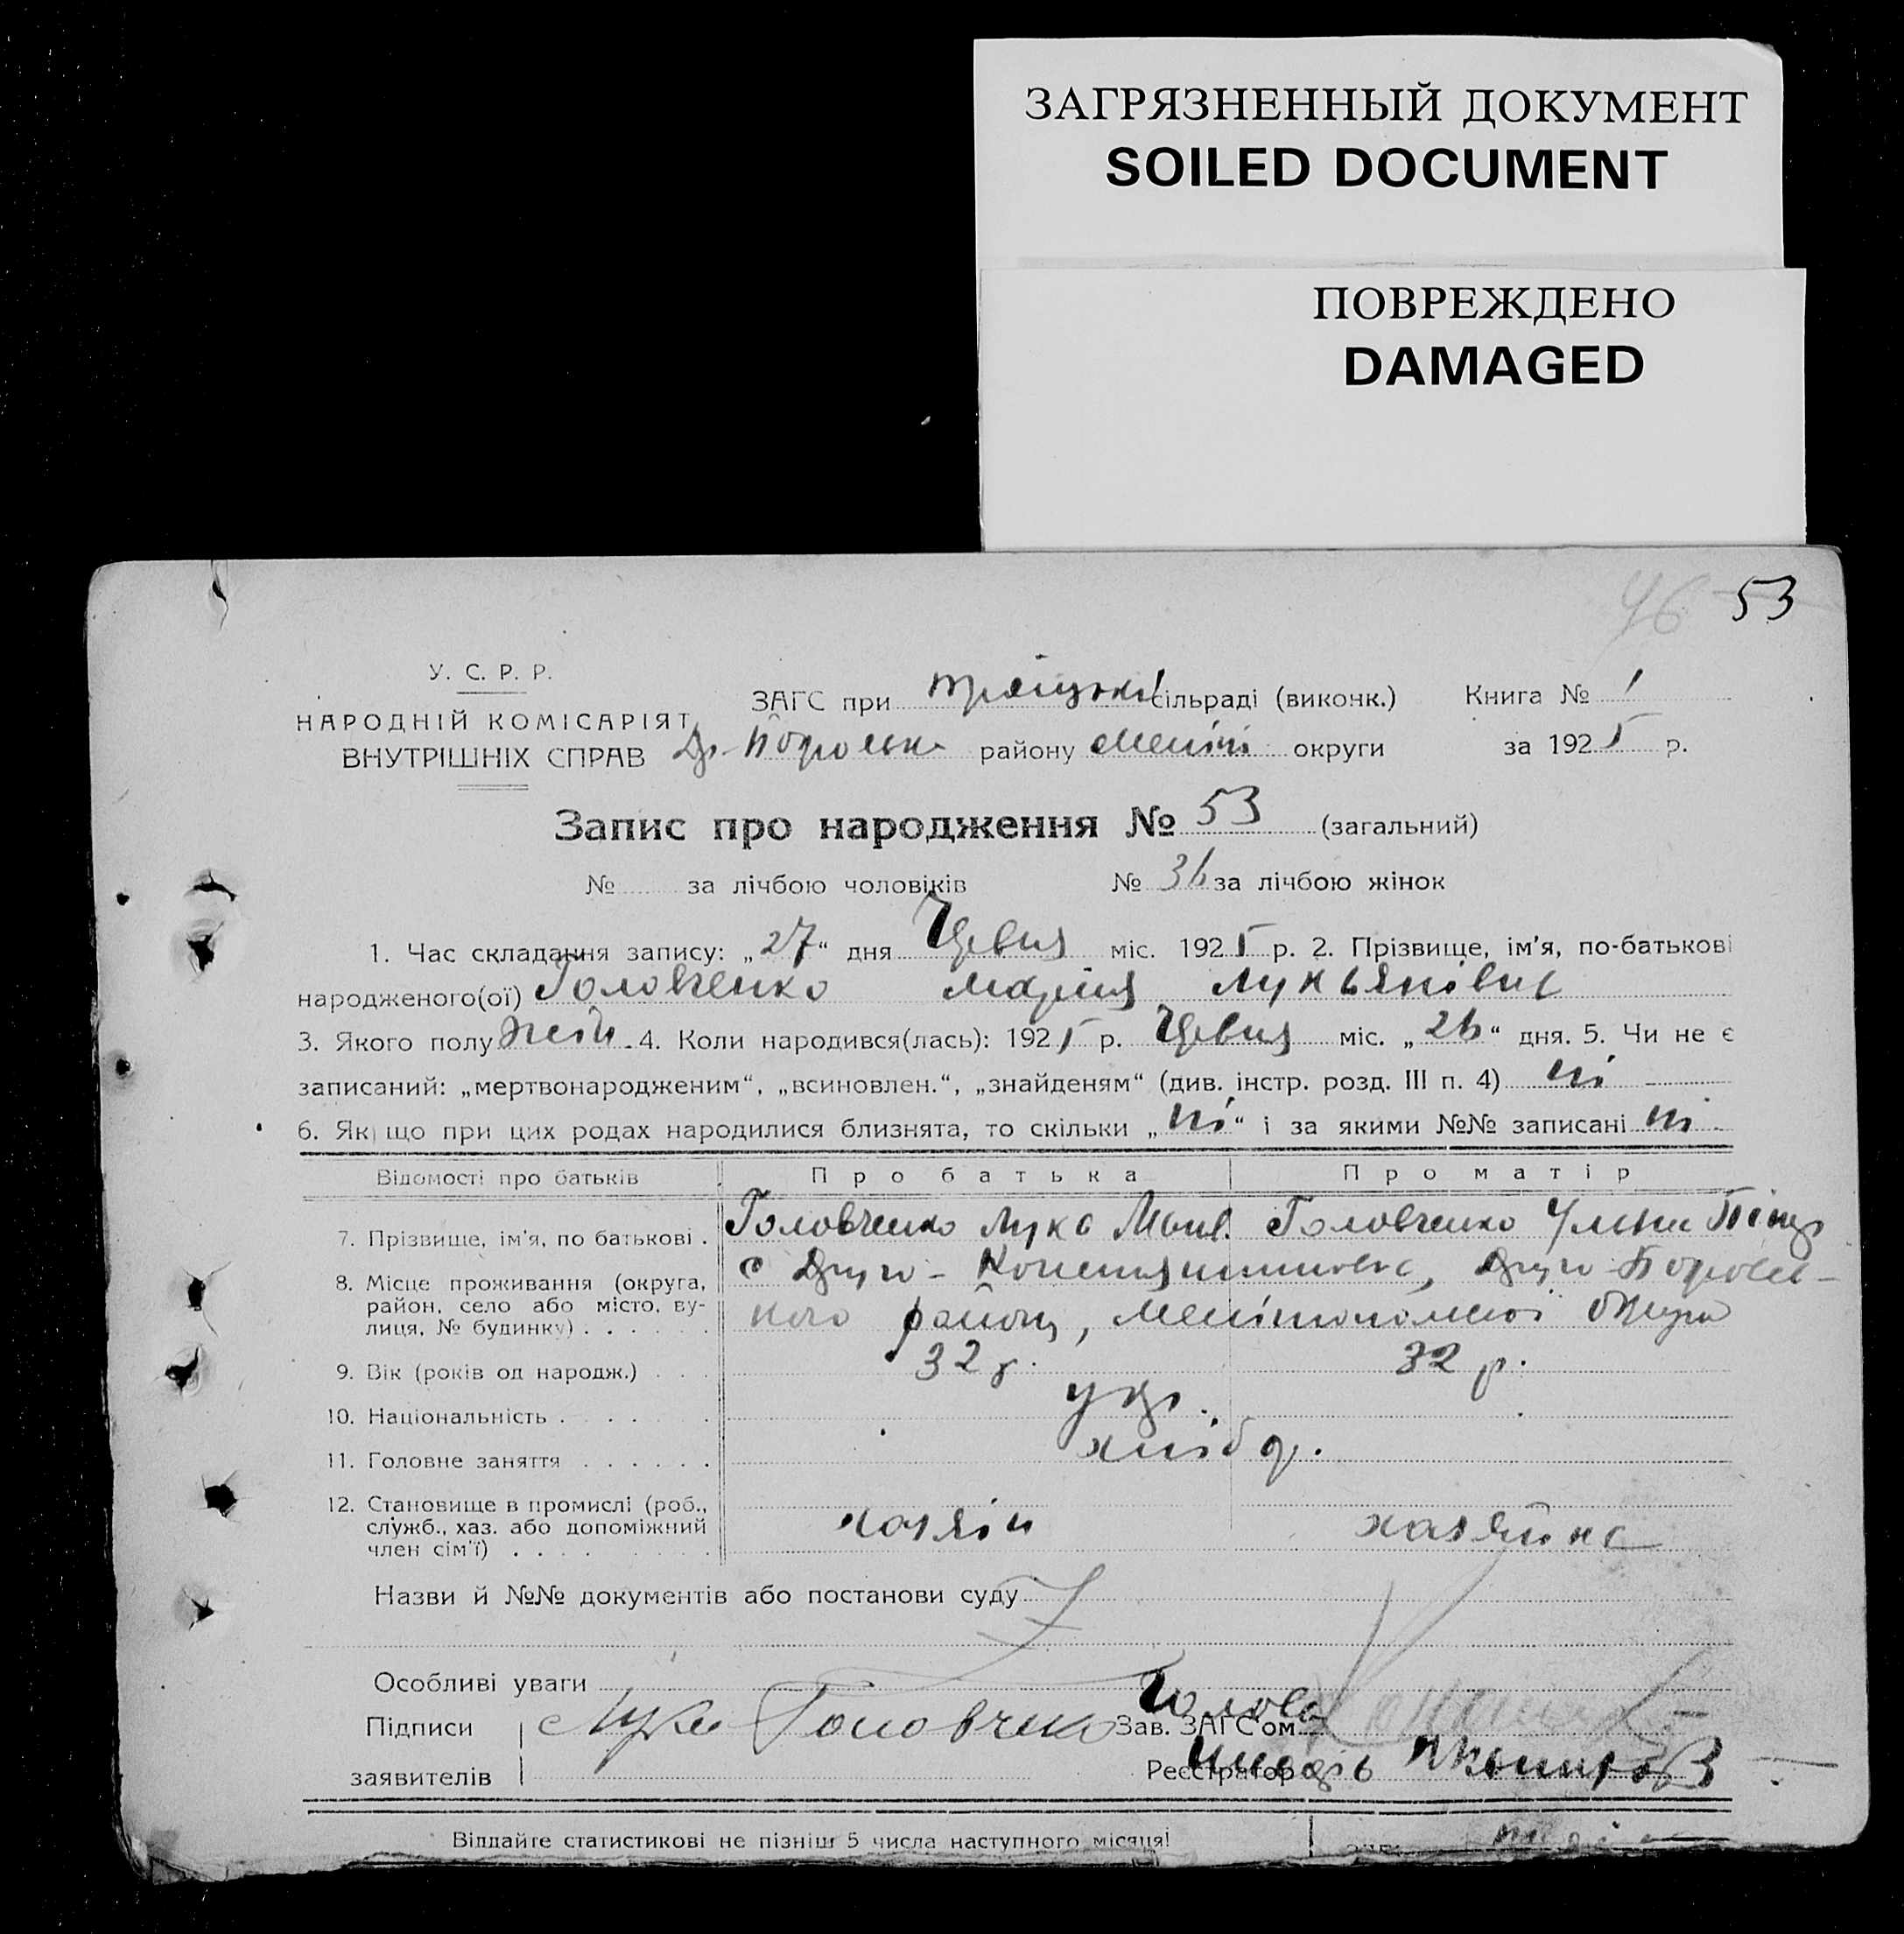 ЗАГРЯЗНЕННЫЙ ДОКУМЕНТ
SOILED DOCUMENT
ПОВРЕЖДЕНО
DAMAGED
46 53
У. С. Р. Р.
НАРОДНІЙ КОМІСАРІЯТ
ВНУТРІШНІХ СПРАВ
ЗАГС при сільраді (виконк.) Книга № 1
району Меліт округи за 1925 р.
Запис про народження № 53 (загальний)
№ за лічбою чоловіків № 36 за лічбою жінок
1. Час складання запису: „27“ дня міс. 1925 р. 2. Прізвище, ім’я, по-батькові
народженого(ої) Головченко Марія Лукьянівна
3. Якого полу жін. 4. Коли народився(лась): 1925 р. міс. „26“ дня. 5. Чи не є
записаний: „мертвонародженим“, „всиновлен.“, „знайденям“ (див. інстр. розд. III п. 4) ні
6. Як що при цих родах народилися близнята, то скільки „ні“ і за якими №№ записані ні
Відомості про батьків Про батька Про матір
7. Прізвище, ім’я, по батькові . Головченко Лука Головченко
8. Місце проживання (округа,
район, село або місто, ву-
лиця, № будинку) . . . . . .
с Друго-Константиновка, Друго-Боровсь-
кого району, Мелітопольської округи
9. Вік (років од народж.) . . . 32 р. 32 р.
10. Національність . . . . . . укр.
11. Головне заняття . . . . . . хлібор.
12. Становище в промислі (роб.,
служб., хаз. або допоміжний
член сім’ї) . . . .
хазяїн хазяйка
Назви й №№ документів або постанови суду
Особливі уваги
Підписи Лука Головченко Голова
Зав. ЗАГС’ом
заявителів Реєстратор
Віддайте статистикові не пізніш 5 числа наступного місяця!